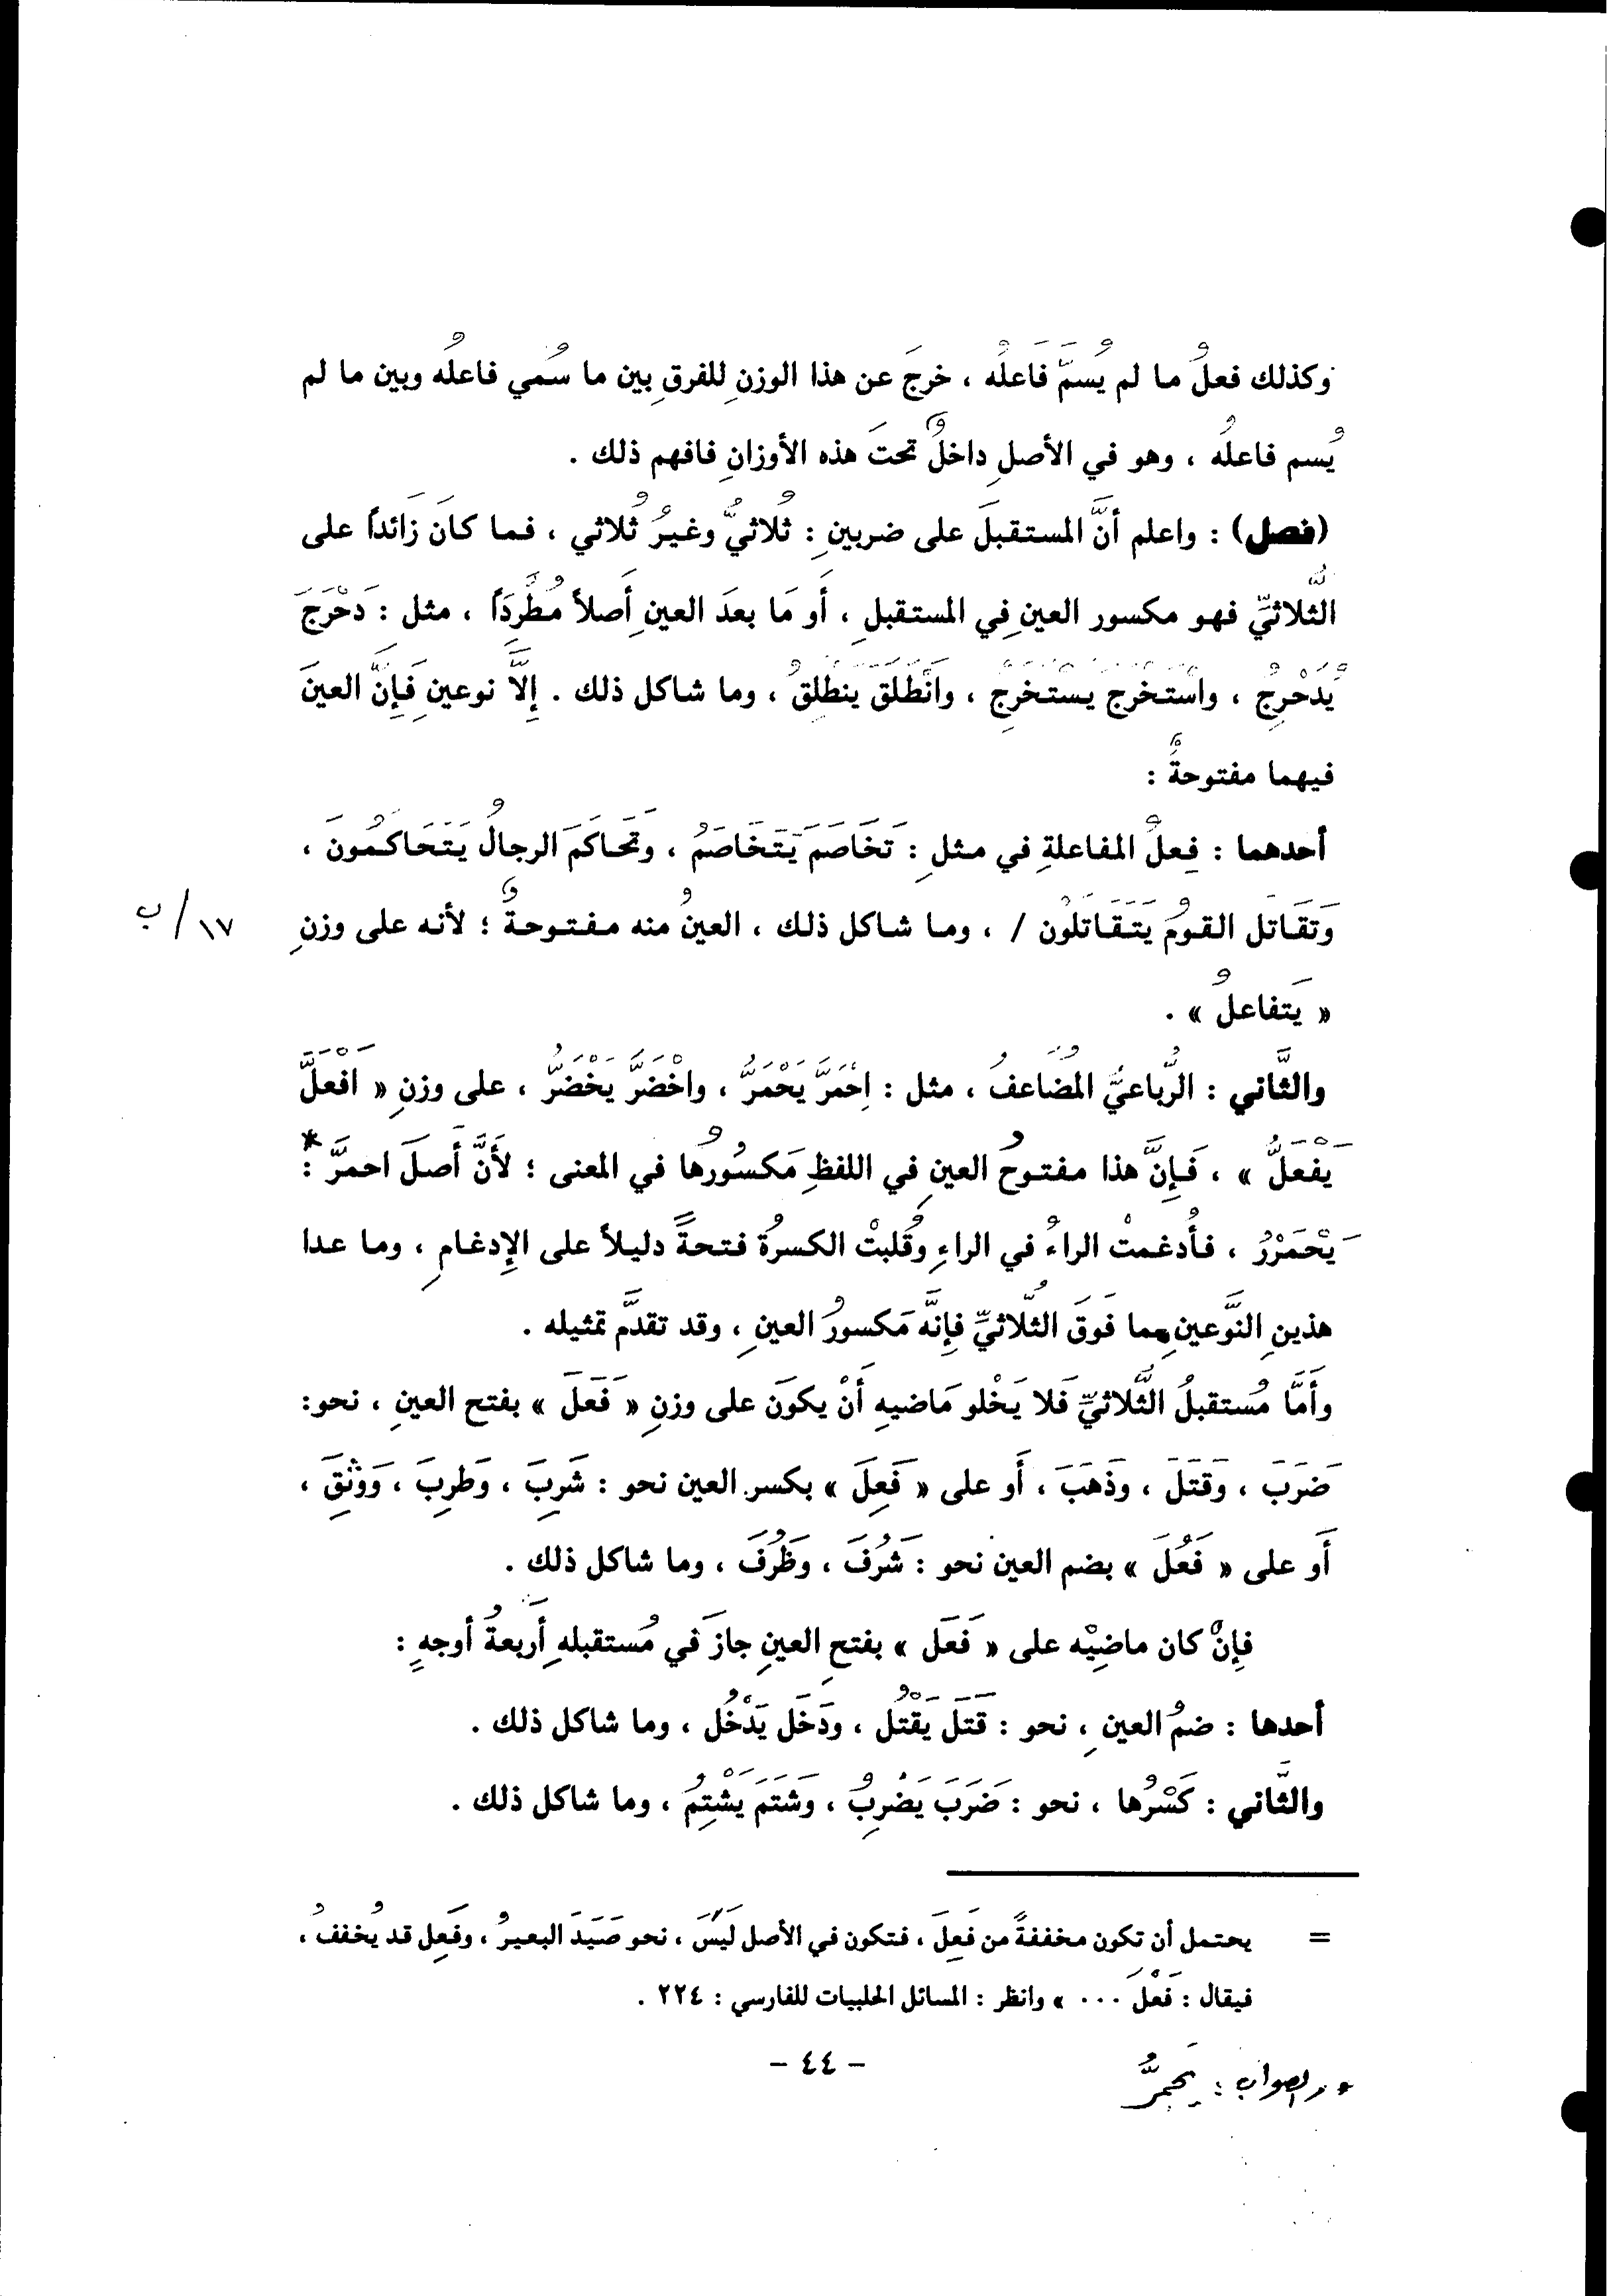 وكذلك فعلُ ما لم يُسمَّ فَاعلُه ، خرجَ عن هذا الوزنِ للفرقِ بين ما سُمي فاعلُه وبين ما لم
يُسم فاعلُه ، وهو في الأصلِ داخلٌ تحتَ هذه الأوزانِ فافهم ذلك .
(فصل) : واعلم أنَّ المستقبلَ على ضربينِ : ثُلاثيٌّ وغيرُ ثُلاثي ، فما كانَ زَائداً على
الثُّلاثيِّ فهو مكسور العينِ في المستقبلِ ، أَو مَا بعدَ العينِ أَصلاً مُطَّرِدَاً ، مثل : دَحْرَجَ
يُدَحْرِجُ ، واسْتَخْرَجَ يَسْتَخْرِجُ ، وانْطَلَقَ يَنطَلِقُ ، وما شاكل ذلك . إِلاَّ نوعينِ فَإِنَّ العينَ
فيهما مفتوحةٌ :
أحدهما : فِعلُ المفاعلةِ في مثلِ : تَخَاصَمَ يَتَخَاصَمُ ، وَتَحَاكَمَ الرجالُ يَتَحَاكَمُونَ ،
وَتَقَاتل القومُ يَتَقَاتَلُون / ، وما شاكل ذلك ، العينُ منه مفتوحةٌ ؛ لأنه على وزنِ
١٧/ ب
« يَتفاعلُ » .
والثَّاني : الرُّباعيُّ المُضَاعفُ ، مثل : اِحْمَرَّ يَحْمَرُّ ، واخْضَرَّ يَخْضَرُّ ، على وزنِ « افْعَلَّ
يَفْعَلُّ » ، فَإِنَّ هذا مفتوحُ العينِ في اللفظِ مَكسُورُها في المعنى ؛ لأَنَّ أَصلَ احمرَّ * :
يَحْمَرْرُ ، فأُدغمتْ الراءُ في الراءِ وقُلبتْ الكسرةُ فتحةً دليلاً على الإِدغامِ ، وما عدا
هذينِ النَّوعينِ مما فَوقَ الثُّلاثيِّ فإِنَّه مَكسورُ العينِ ، وقد تقدَّم تمثيله .
وأَمَّا مُستقبلُ الثُّلاثيِّ فَلا يَخْلو مَاضيهِ أَنْ يكوَن على وزنِ « فَعَلَ » بفتح العينِ ، نحو:
ضَرَبَ ، وَقَتَلَ ، وَذَهَبَ ، أَو على « فَعِلَ » بكسر العين نحو : شَرِبَ ، وَطَرِبَ ، وَوَثِقَ ،
أَو على « فَعُلَ » بضم العين نحو : شَرُفَ ، وَظَرُفَ ، وما شاكل ذلك .
فإِنْ كان ماضِيْه على « فَعَل » بفتحِ العينِ جازَ في مُستقبلهِ أَربعةُ أوجهٍ :
أحدها : ضمُ العينِ ، نحو : قَتَلَ يَقْتُل ، ودَخَل يَدْخُل ، وما شاكل ذلك .
والثَّاني : كَسْرُها ، نحو : ضَرَبَ يَضْرِبُ ، وَشَتَمَ يَشْتِمُ ، وما شاكل ذلك .
= يحتمل أن تكون مخففةً من فَعِلَ ، فتكون في الأصل لَيِسَ ، نحو صَيَدَ البعيرُ ، وفَعِل قد يُخففُ ،
فيقال : فَعْلَ ... » وانظر : المسائل الحلبيات للفارسي : ٢٢٤ .
* والصواب : يَحمِرُّ
- ٤٤ -